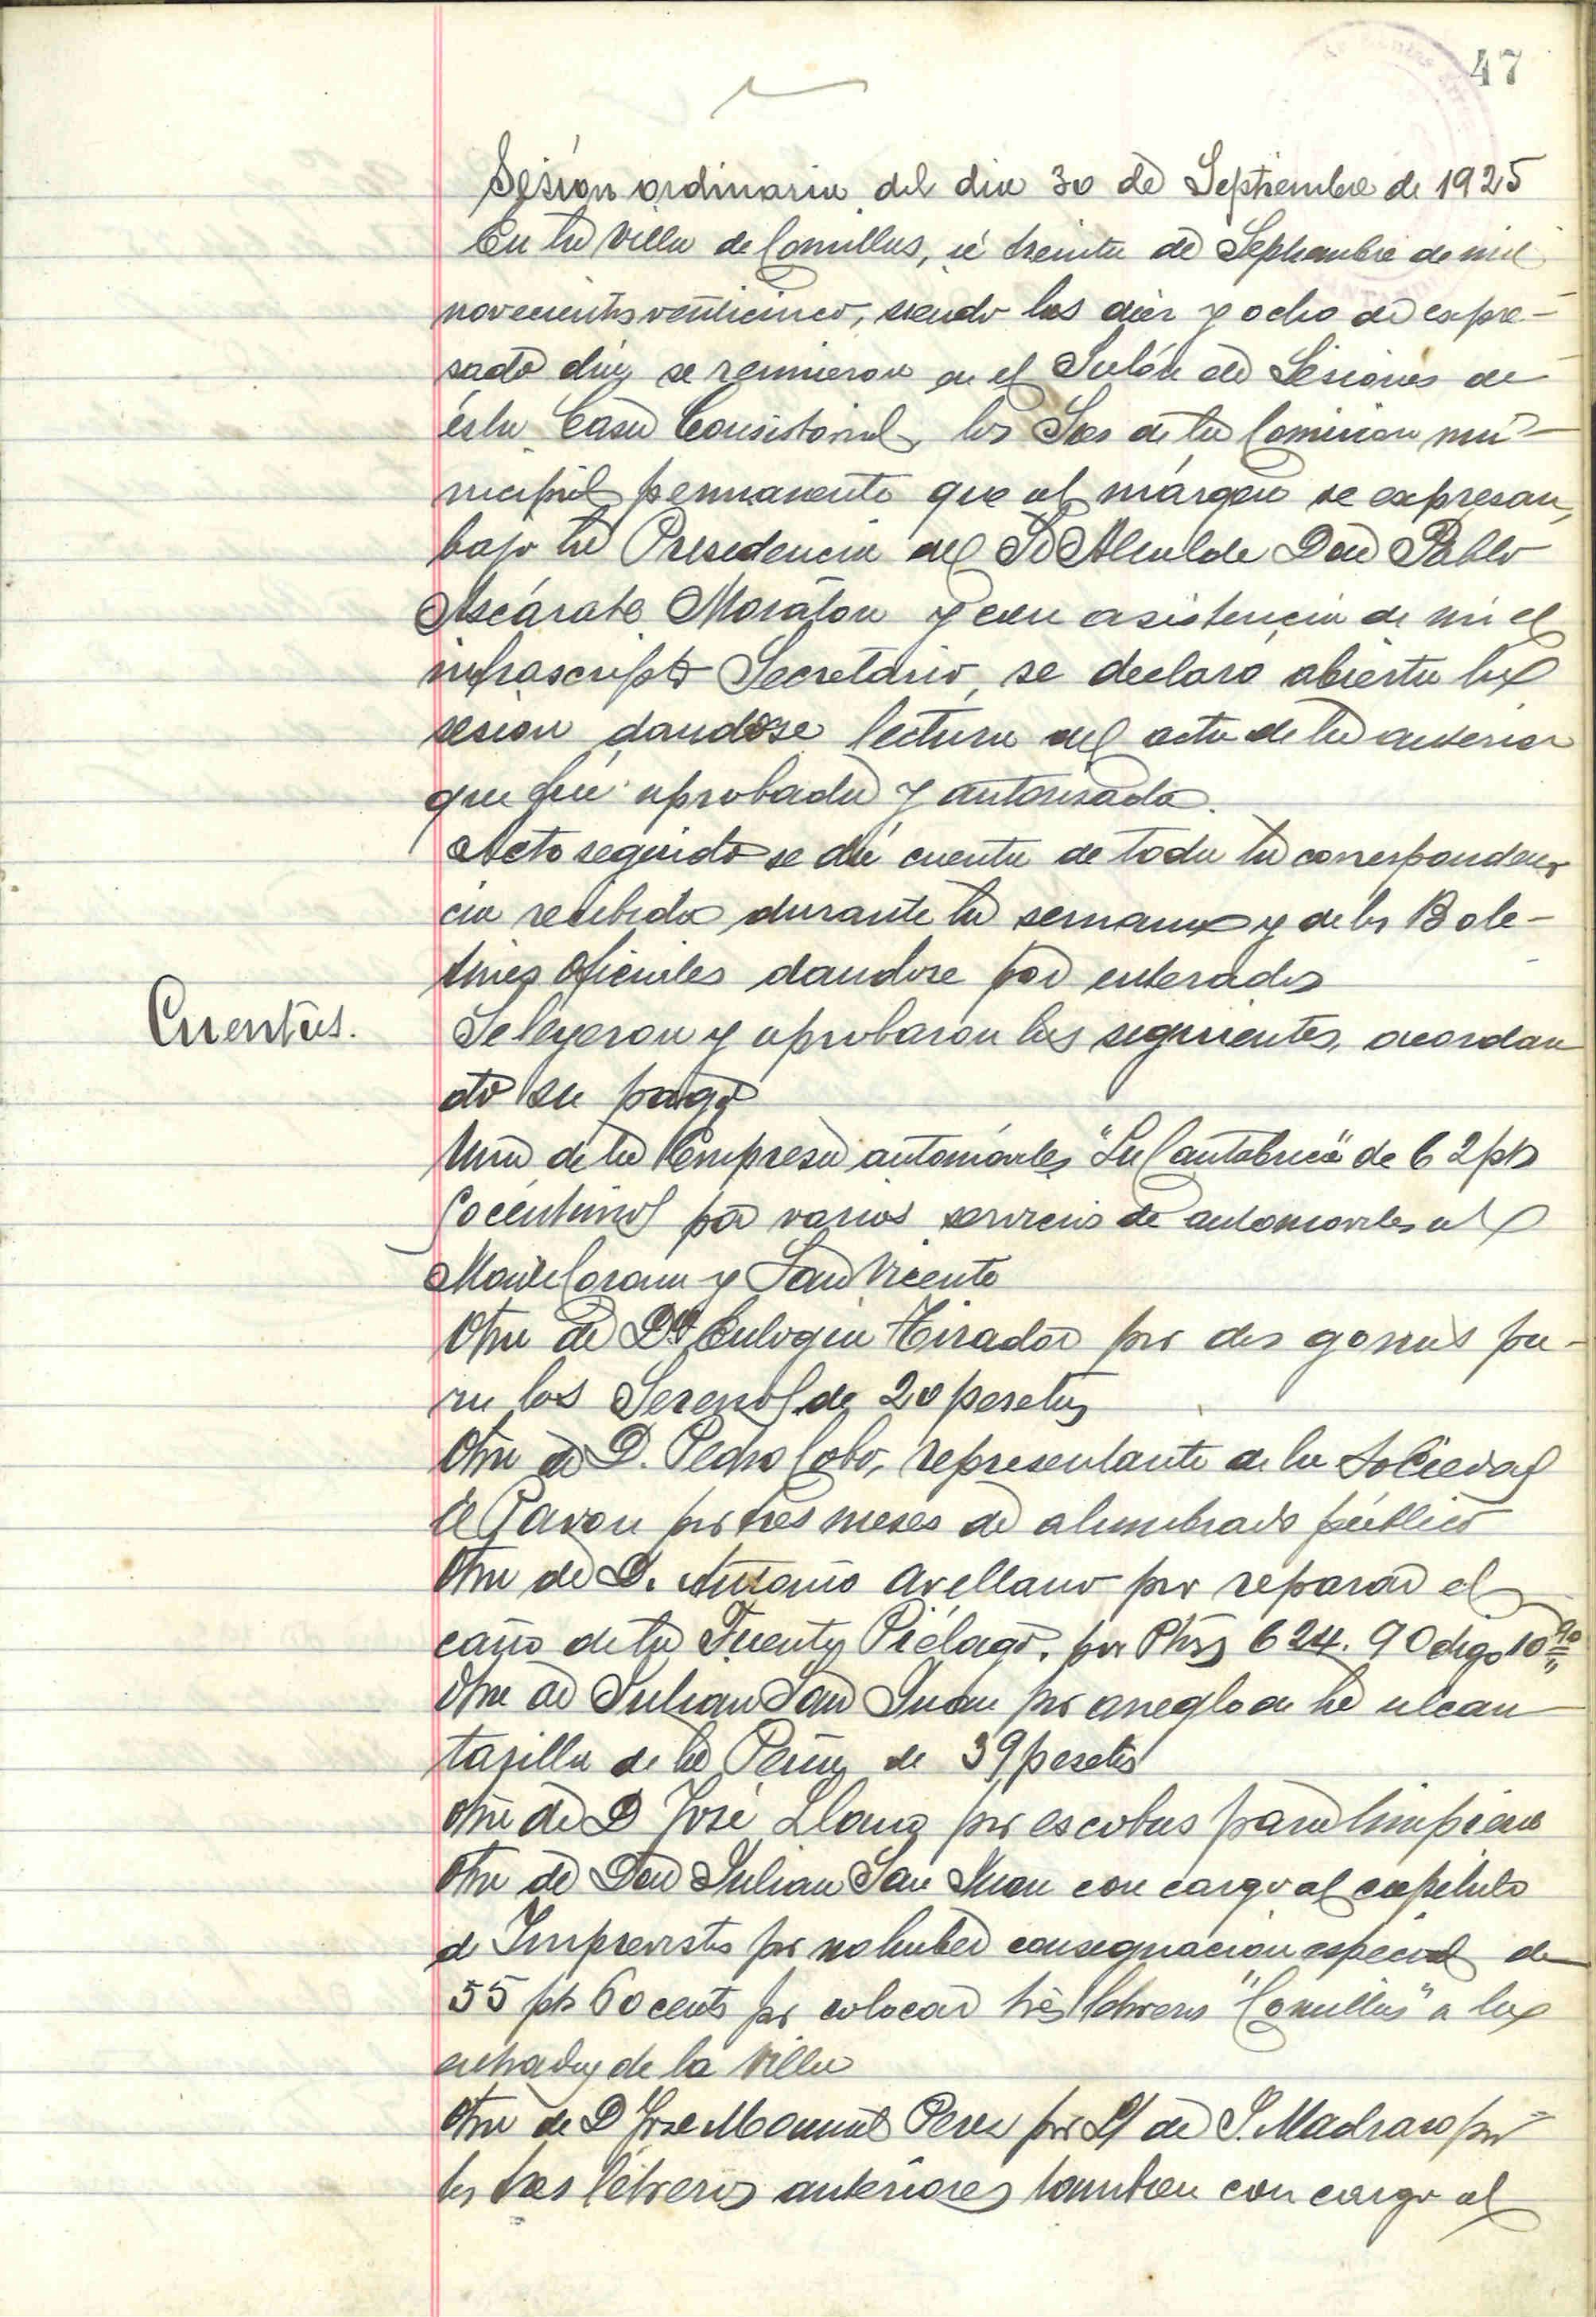 47
Sesión ordinaria del dia 30 de Septiembre de 1925
En la Villa de Comillas, á treinta de Septiembre de mil
novecientos veinticinco, siendo las diez y ocho de expre-
sado dia, se reunieron en el Salón de Sesiones de
ésta Casa Consistorial, los Sres de la Comision mu-
nicipal permanente que al márgen se expresan,
bajo la Presidencia del Sr Alcalde Don Pablo
Ascárate Moratón y con asistencia de mi el
infrascripto Secretario, se declaró abierta la
sesion dandose lectura del acta de la anterior
que fué aprobada y autorisada.
Acto seguido se dió cuenta de toda la corresponden-
cia recibida durante la semana y de los Bole-
tines Oficiales dandose por enterados
Cuentas.
Se leyeron y aprobaron las seguientes, acordan
do su pago
Una de la Empresa automóviles "La Cantábrica" de 62 pts
60 centimos por varios servicios de automoviles al
Monte Corona y San Vicente
Otra de Dª Eulogia Tirador por dos gorras pa-
ra los Serenos de 20 pesetas
Otra de D. Pedro Cobo, representante de la Sociedad
El Pavon por tres meses de alumbrado público
Otra de D. Antonio Arellano por reparar el
caño de la Fuente Piélago, por Ptas 624.90 digo 10 90
Otra de Julian San Juan por arreglo de la alcan
tarilla de la Peña de 39 pesetas
Otra de D José Llano por escobas para limpieza
Otra de Don Julian San Juan con cargo al capitulo
de Imprevistos por no haber consegnacion especial de
55 pts 60 cents por colocar tres letreros "Comillas" a las
entradas de la Villa
Otra de D Jose Manuel Perez por de S. Madrazo por
los tres letreros anteriores tambien con cargo al